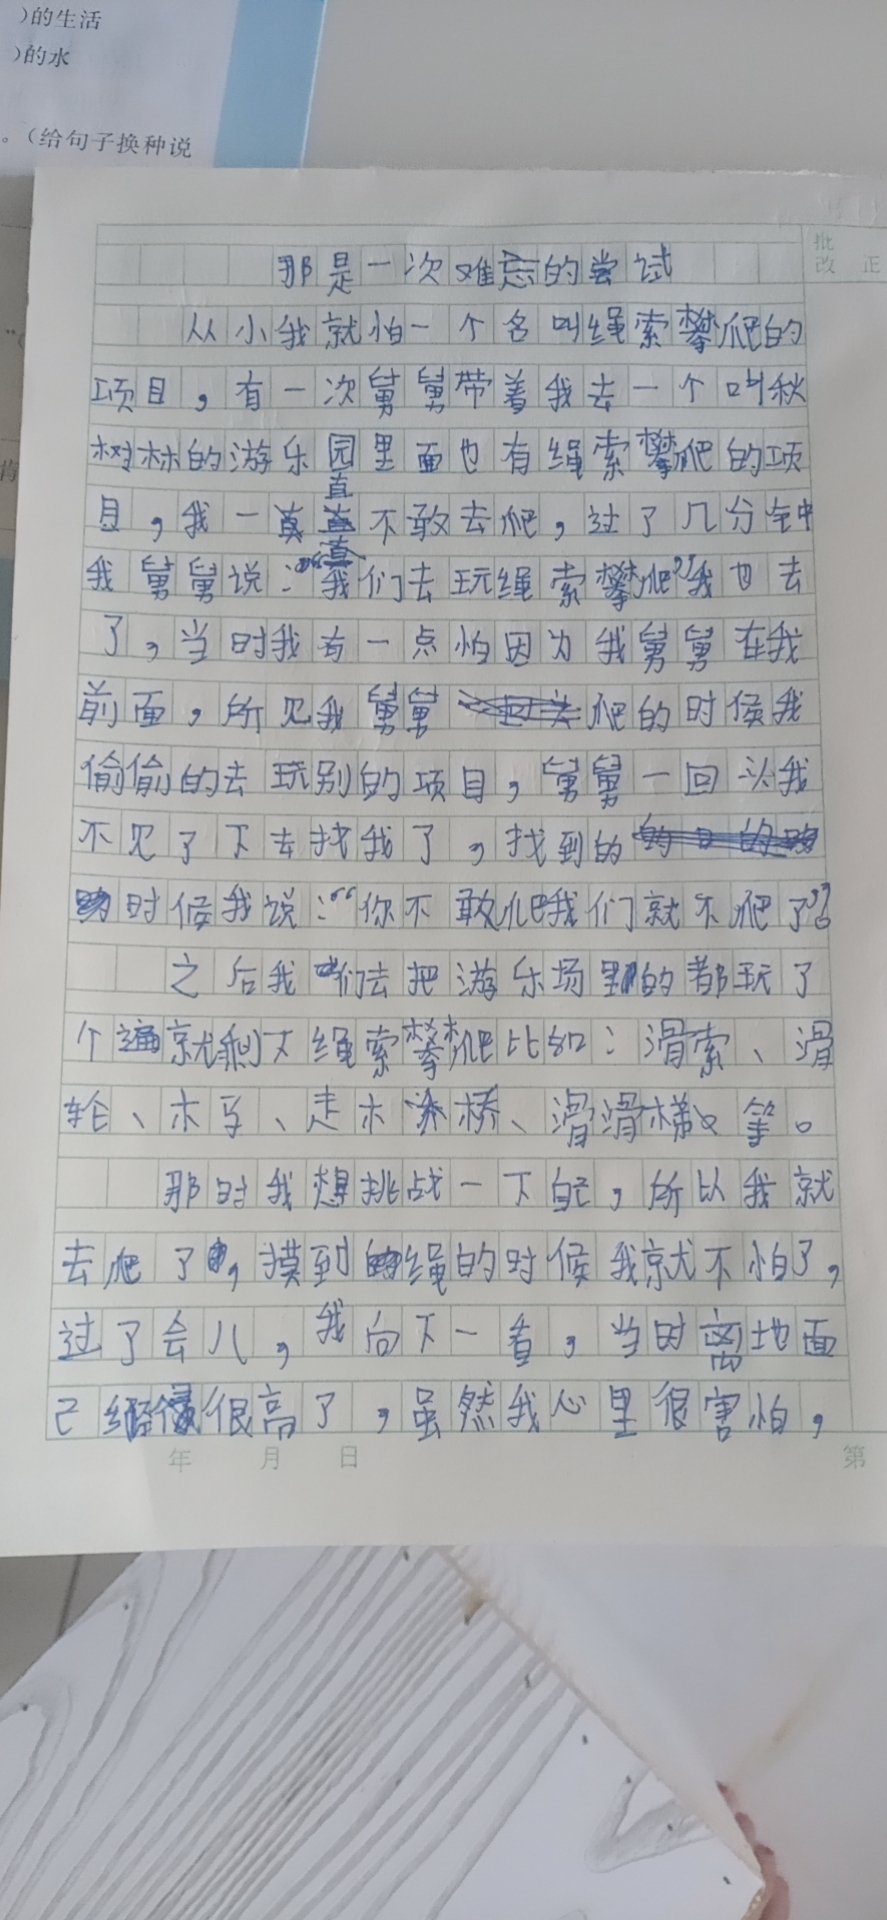 )的生活
)的水
。(给句子换种说
批改 正
那是一次难忘的尝试
从小我就怕一个名叫绳索攀爬的
项目，有一次舅舅带着我去一个叫秋
树林的游乐园里面也有绳索攀爬的项
目，我一直不敢去爬，过了几分钟
我舅舅说：“我们去玩绳索攀爬”我也去
了，当时我有一点怕因为我舅舅在我
前面，所见我舅舅爬的时候我
偷偷的去玩别的项目，舅舅一回头我
不见了下去找我了，找到的
时候我说：“你不敢爬我们就不爬了”。
之后我们去把游乐场里的都玩了
个遍就剩下绳索攀爬比如：滑索、滑
轮、木马、走木桥、滑滑梯等。
那时我想挑战一下自己，所以我就
去爬了，摸到绳的时候我就不怕了，
过了会儿，我向下一看，当时离地面
已经很高了，虽然我心里很害怕，
年 月 日 第